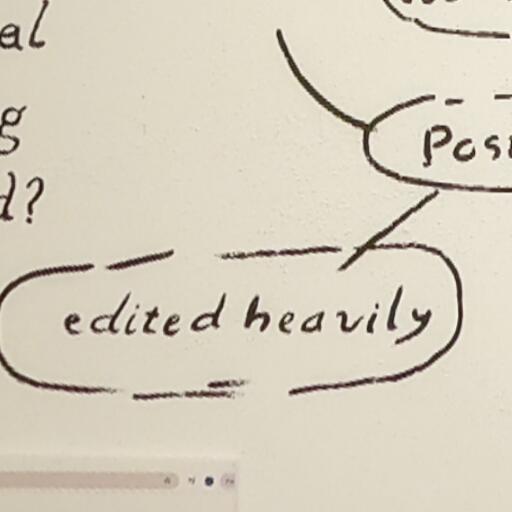 al
g
d?
Pos
edited heavily